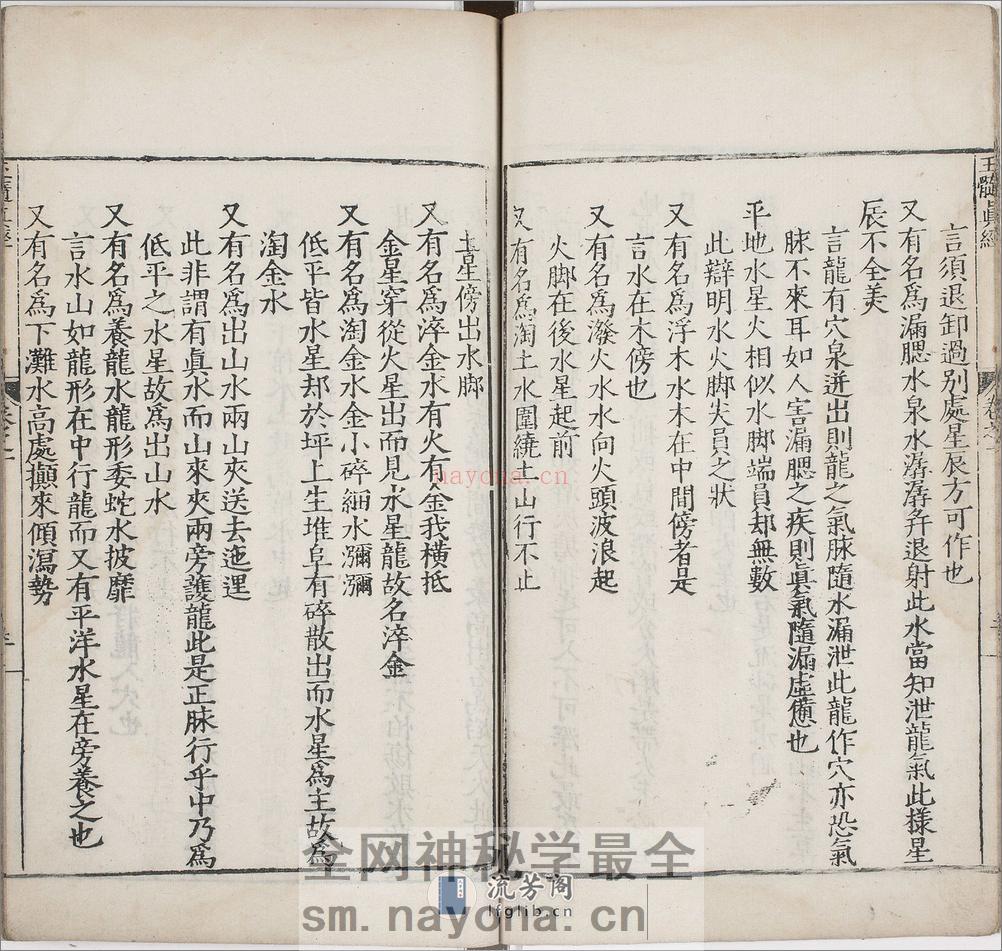 玉髓眞經
言須退卸過別處星辰方可作也
又有名爲漏腮水泉水潺潺弁退射此水當知泄龍氣此樣星
辰不全美
言龍有穴泉迸出則龍之氣脉隨水漏泄此龍作穴亦恐氣
脉不來耳如人害漏腮之疾則眞氣隨漏虛憊也
平地水星火相似水脚端員却無數
此辯明水火脚尖員之狀
又有名爲浮木水木在中間傍者是
言水在木傍也
又有名爲潑火水水向火頭波浪起
火脚在後水星起前
又有名爲淘土水圍繞土山行不止
土星傍出水脚
又有名爲淬金水有火有金我橫抵
金星穿從火星出而見水星龍故名淬金
又有名爲淘金水金小碎細水瀰瀰
低平皆水星却於坪上生堆阜有碎散出而水星爲主故爲
淘金水
又有名爲出山水兩山夾送去迤逞
此非謂有眞水而山來夾兩旁護龍此是正脉行乎中乃爲
低平之水星故爲出山水
又有名爲養龍水龍形委蛇水披靡
言水山如龍形在中行龍而又有平洋水星在旁養之也
又有名爲下灘水高處攧來傾瀉勢
nayona.cn
全网神秘学最全
流芳阁
lfglib.cn
sm.nayona.cn